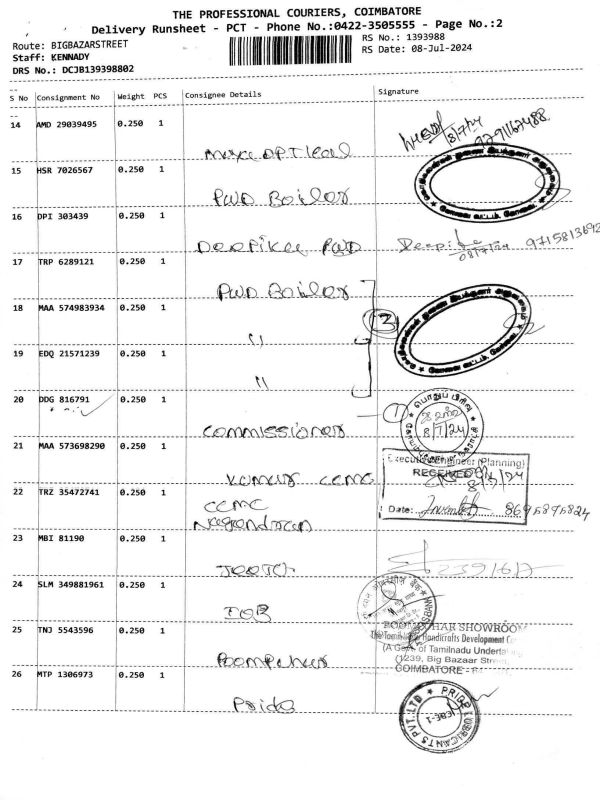 THE PROFESSIONAL COURIERS, COIMBATORE
Delivery Runsheet - PCT - Phone No.:0422-3505555 - Page No.:2
Route: BIGBAZARSTREET
RS No.: 1393988
Staff: KENNADY
RS Date: 08-Jul-2024
DRS No.: DCJB139398802
S No Consignment No Weight PCS Consignee Details Signature
14 AMD 29039495 0.250 1
8/7/24
15 HSR 7026567 0.250 1
PWD Boiler
16 DPI 303439 0.250 1
Deepika PWD
08/7/24 9715813692
17 TRP 6289121 0.250 1
PWD Boiler
18 MAA 574983934 0.250 1
"
3
19 EDQ 21571239 0.250 1
"
20 DDG 816791 0.250 1
Commissioner
1
பொதுப் பிரிவு
8/7/24
21 MAA 573698290 0.250 1
Kumar CCMC
Executive Engineer (Planning)
RECEIVED
8/7/24
22 TRZ 35472741 0.250 1
CCMC
Nagendran
Date: 8695895824
23 MBI 81190 0.250 1
24 SLM 349881961 0.250 1
IOB
25 TNJ 5543596 0.250 1
Poompuhar
POOMPUHAR SHOWROOM
The Tamil Nadu Handicrafts Development
(A Govt. of Tamilnadu Undertaking
(1239, Big Bazaar Street
COIMBATORE
26 MTP 1306973 0.250 1
Pride
PRIDE LUBRICANTS PVT.LTD
CBE-1